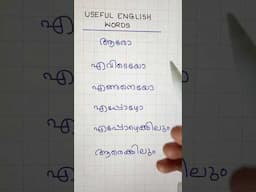 USEFUL ENGLISH
WORDS
ആരോ
എവിടെയോ
എങ്ങനെയോ
എപ്പോഴോ
എപ്പോഴെങ്കിലും
ആരെങ്കിലും